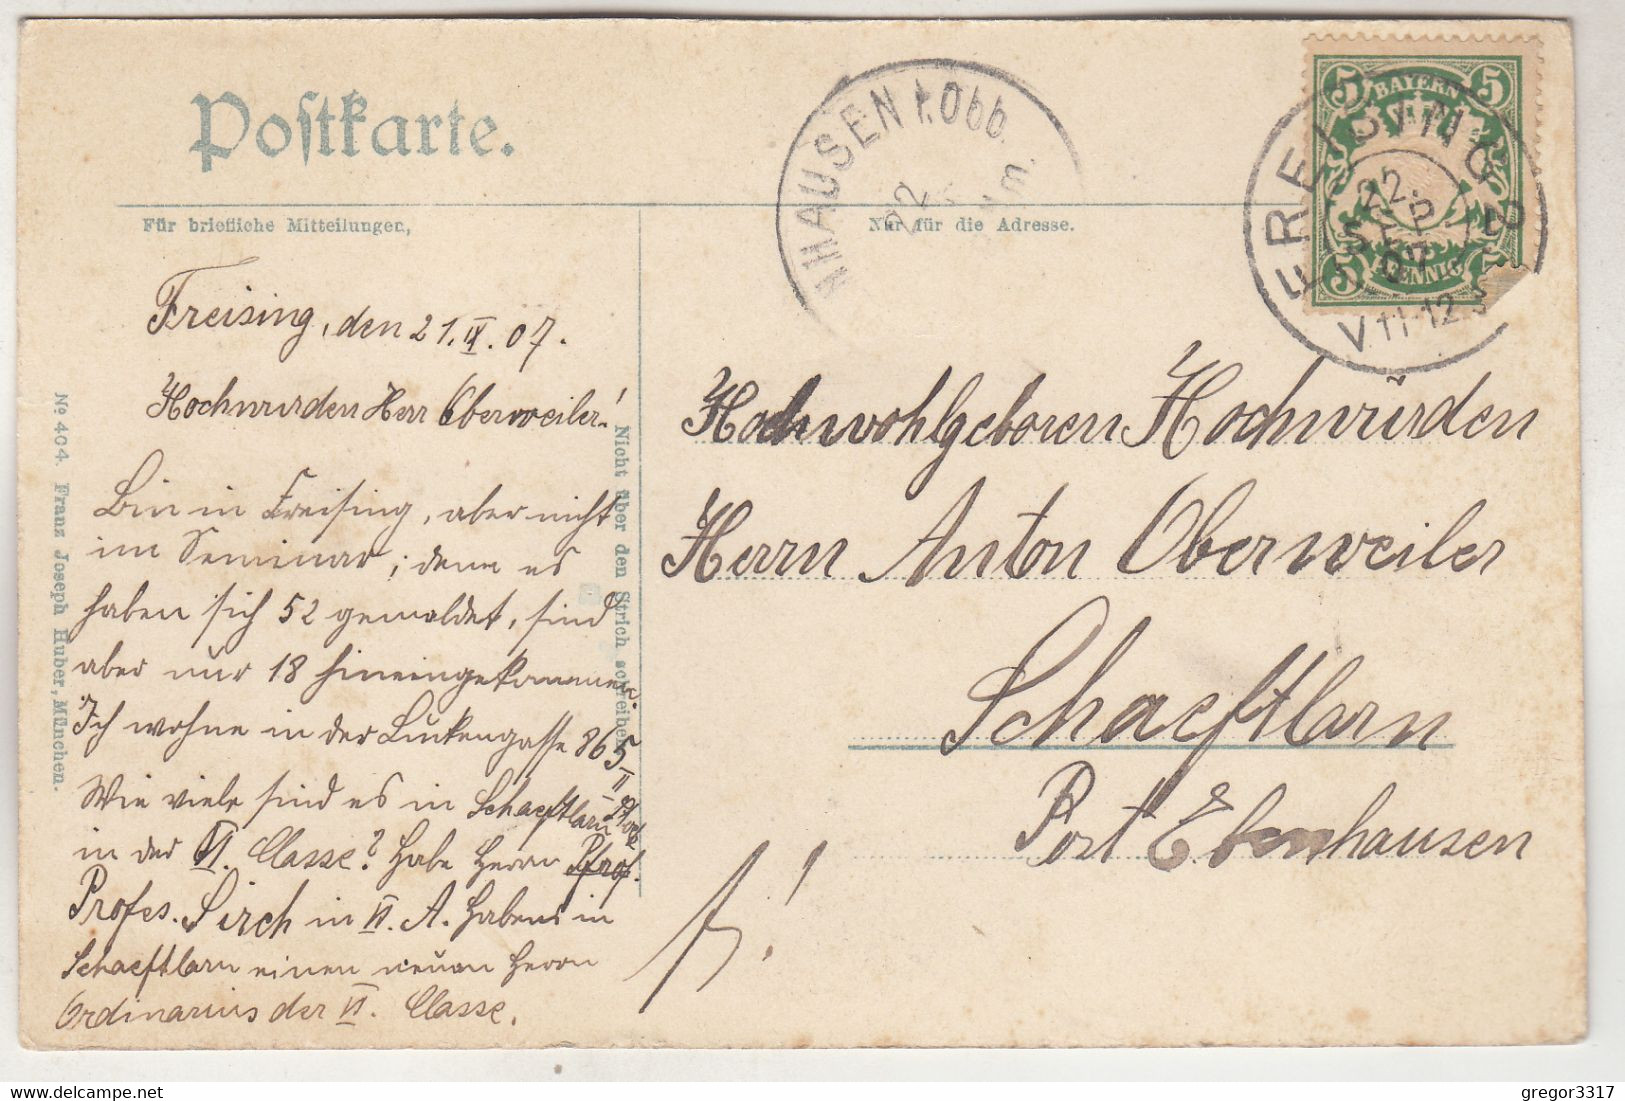 Postkarte.
Für briefliche Mitteilungen,
Nur für die Adresse.
NHAUSEN i.Obb.
22
BAYERN
5 5
5 5
PFENNIG
FREISING 2
22.
SEP
07
V 11-12
Freising, den 21. IX. 07.
Hochwürden Herr Oberweiler!
Bin in Freising, aber nicht
im Seminar; denn es
haben sich 52 gemeldet, sind
aber nur 18 hineingekommen.
Ich wohne in der Luckengasse 865
II Stock
Wie viele sind es in Schaeftlarn
in der VI. Classe? Habe Herrn Prof.
Profes. Sirch in VI. A. Habens in
Schaeftlarn einen neuen Herrn
Ordinarius der VI. Classe.
Hochwohlgeboren Hochwürden
Herrn Anton Oberweiler
Schaeftlarn
Post Ebenhausen
Nicht über den Strich schreiben
№ 404. Franz Joseph Huber, München.
gregor3317